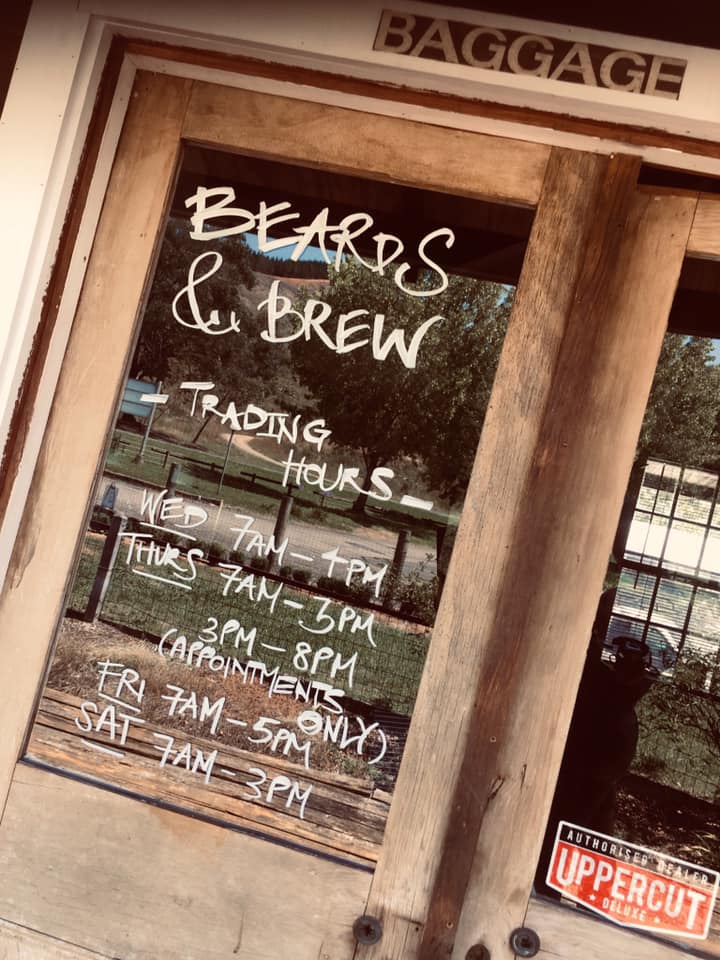 BAGGAGE
BEARDS
& BREW
- TRADING
HOURS -
WED 7AM - 4PM
THURS 7AM - 3PM
3PM - 8PM
(APPOINTMENTS
ONLY)
FRI 7AM - 5PM
SAT 7AM - 3PM
AUTHORISED DEALER
UPPERCUT
DELUXE